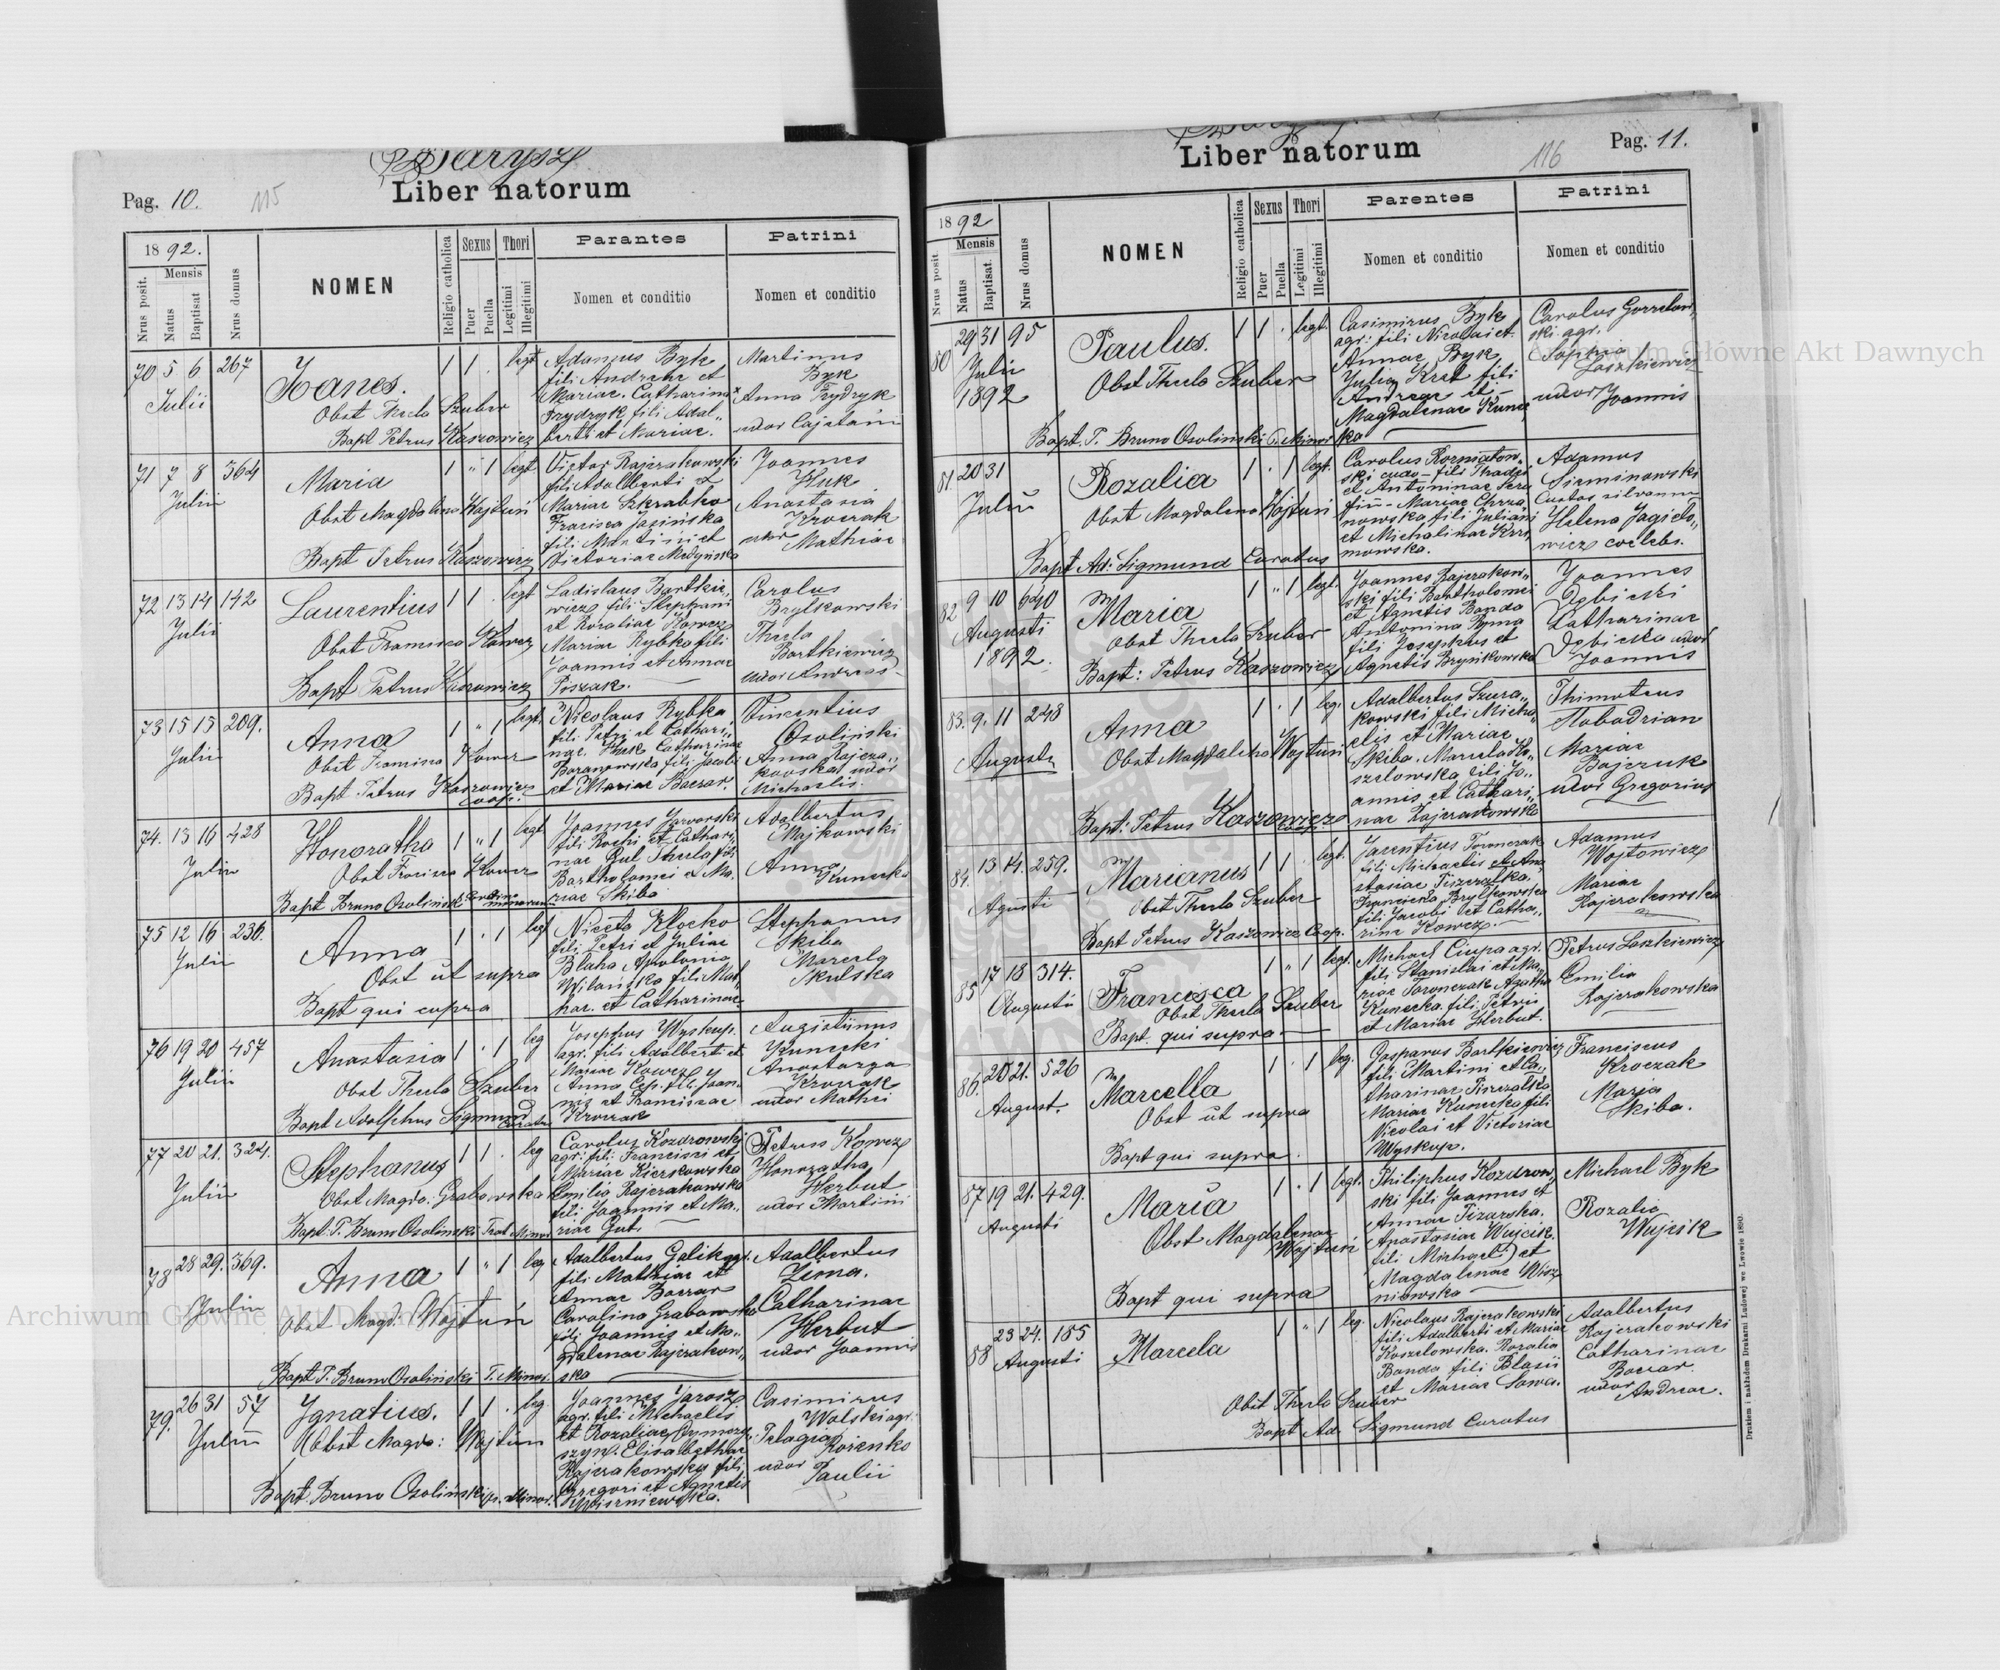 Barysz
Liber natorum
Pag. 10.
115
1892.
Nrus posit.
Mensis
Natus
Baptisat
Nrus domus
NOMEN
Religio catholica
Sexus
Puer
Puella
Thori
Legitimi
Illegitimi
Parantes
Nomen et conditio
Patrini
Nomen et conditio
70 5 6 267
Julii
Joanes.
Obst Thecla Szuber
Bapt Petrus Kaszowicz
1 1 . legt
Adamus Byk
fili Andreae et
Mariae. Catharina
Frydryk fili Adal
berti et Mariae.
Martinus
Byk
Anna Frydryk
uxor Cajetani
71 7 8 364
Julii
Maria
Obst Magdalena Wojtun
Bapt Petrus Kaszowicz
1 " 1 legt
Victor Rajzakowski
fili Adalberti et
Mariae Skrabko
Fracisca Jasińska
fili Martini et
Victoriae Medyńska
Joannes
Huk
Anastasia
Kroczak
uxor Mathiae
72 13 14 142
Julii
Laurentius
Obst Francisca Kowcz
Bapt Petrus Kaszowicz
1 1 . legt
Ladislaus Bartkie„
wicz fili Stephani
et Rozaliae Kowcz
Mariae Rybka fili
Joannis et Annae
Piszak.
Carolus
Brylkowski
Thecla
Bartkiewicz
uxor Andreas
73 15 13 209.
Julii
Anna
Obst Francisca Kowcz
Bapt Petrus Kaszowicz
coop.
1 " 1 legt.
Nicolaus Rybka
fili Petri et Cathari„
nae. Huk Catharinae
Baranowska fili Jacobi
et Mariae Boczar.
Vincentius
Osoliński
Anna Rajcza„
kowska uxor
Michaelis.
74. 13 16 428
Julii
Honoratha
Obst Fracisca Kowcz
Bapt Bruno Osoliński
1 " 1 legt
Joannes Jaworski
fili Rochi et Cathari„
nae Gut Thecla fili
Bartholomei et Ma.
riae Skiba
Adalbertus
Majkowski
Anna
Kunecka
75 12 16 236.
Julii
Anna
Obst ut supra
Bapt qui supra
1 . 1 legt
Niceta Klocko
fili Petri et Juliae
Blaha Apolonia
Wilańska fili Mat
hae. et Catharinae
Stephanus
Skiba
Marcela
Skulska
76 19 20 457
Julii
Anastasia
Obst Thecla Szuber
Bapt Adolphus Sigmund
Curatus
1 . 1 leg
Josephus Wyskup.
agr. fili Adalberti et
Mariae Kowcz
Anna Cep. fili Joan.
nis et Franciscae
Kroczak
Augistinus
Kunecki
Anastazya
Kroczak
uxor Mathei
77 20 21. 324.
Julii
Stephanus
Obst Magda. Grabowska
Bapt: P. Bruno Osoliński Frat Minor
1 1 . leg
Carolus Kozdrowski
agr: fili Francisci et
Mariae Kierskowska
Emilia Rajzakowska
fili Joannis et Ma„
riae Gut.
Petruss Kowcz
Honoratha
Herbut
uxor Martini
78 28 29. 369.
Julii
Anna
Obst Magd. Wojtuń
Bapt P. Bruno Osoliński F. Minor
1 " 1 leg
Adalbertus Galik agr.
fili Mathiae et
Annae Boczar
Carolina Grabowska
fili Joannis et Ma„
gdalenae Rajczakow„
ska
Adalbertus
Zima.
Catharinae
Herbut
uxor Joannis
79. 26 31 57
Julii
Ignatius.
Obst Magda: Wojtun
Bapt. Bruno Osoliński p. Minor.
1 1 . leg
Joannes Jarosz
agr. fili Michaelis
et Rozaliae Domorz
szyn. Elisabethae
Rajczakowska fili
Gregori et Agnetis
Wiszniewska.
Casimirus
Wolski agr.
Pelagia
Korenko
uxor
Paulii
Liber natorum
116
Pag. 11.
1892
Nrus posit
Mensis
Natus
Baptisat.
Nrus domus
NOMEN
Religio catholica
Sexus
Puer
Puella
Thori
Legitimi
Illegitimi
Parentes
Nomen et conditio
Patrini
Nomen et conditio
80 29 31 95
Julii
1892
Paulus.
Obst Thecla Szuber
Bapt. P. Bruno Osoliński O. Minor
1 1 . legt.
Casimirus Byk
agr: fili Nicolai et
Annae Byk
Julia Kret fili
Andreae et
Magdalenae Kunec
ka
Carolus Gorzelow„
ski agr.
Sophia
Laszkiewicz
uxor Joannis
81 20 31
Julii
Rozalia
Obst Magdalena Wojtun
Bapt Ad: Sigmund Curatus
1 . 1 legt.
Carolus Rozmiatow„
ski
et Antoninae Sera
fin Mariae Chrza
nowska fili Juliani
et Michalinae Krzy
mowska.
Adamus
Siemsnowski
Custos silvarum
Helena Jagieło„
wicz coelebs.
82 9 10 640
Augusti
1892.
Maria
Obst Thecla Szuber
Bapt: Petrus Kaszowicz
1 " 1 legt.
Joannes Rajzakow„
ski fili Bartholomei
et Agnetis Banda
Antonina Ryma
fili Josephus et
Agnetis Brynkowska
Joannes
Dębicki
Katharinae
Dębicka uxor
Joannis
83. 9. 11 248
Augusti
Anna
Obst Magdalena Wojtun
Bapt: Petrus Kaszowicz
coop.
1 . 1 leg.
Adalbertus Szura„
kowski fili Micha„
elis et Mariae
Skiba. Marcela Ko„
szelowska fili Jo„
annis et Cathari„
nae Rajczakowska
Thimoteus
Slobodrian
Mariae
Bajczuk
uxor Gregorius
84. 13 14. 259.
Agusti
Marianus
Obst Thecla Szuber
Bapt Petrus Kaszowicz Coop.
1 1 . legt.
Taronczak
fili Michaelis et Ana
stasiae Piszczalka.
Francisca Brylkowska
fili Jacobi et Catha„
rine Kowcz.
Adamus
Wojtowicz
Mariae
Rajczakowska
85 17 18 314.
Augusti
Francisca
Obst Thecla Szuber
Bapt. qui supra
1 " 1 legt.
Michael Ciupa agr.
fili Stanislai et Ma„
riae Toronczak Agatha
Kunecka fili Petris
et Mariae Herbut.
Petrus Laszkiewicz
Emilia
Rajczakowska
86. 20 21. 526
August.
Marcella
Obst ut supra
Bapt qui supra.
1 . 1 leg.
Gasparus Bartkiewicz
fili Martini et Ca„
tharinae Piszczalska
Mariae Kunecka fili
Nicolai et Victoriae
Wyskup.
Franciscus
Kroczak
Maria
Skiba.
87 19 21. 429.
Augusti
Maria
Obst Magdalenae
Wojtun
Bapt qui supra
1 . 1 legt.
Philiphus Kozdrow„
ski fili Joannes et
Annae Pizarska.
Anastasiae Wujcik.
fili Michaeli et
Magdalenae Wisz
niowska
Michael Byk
Rozalia
Wujcik
88 23 24. 185
Augusti
Marcela
Obst Thecla Szuber
Bapt Ad. Sigmund Curatus
1 " 1 leg.
Nicolaus Rajczakowski
fili Adalberti et Mariae
Koszelowska. Rozalia
Banda fili Blasii
et Mariae Sowa.
Adalbertus
Rajczakowski
Catharinae
Boczar.
uxor
Andreae.
Drukiem i nakładem Drukarni Ludowej we Lwowie 1890.
Archiwum Główne Akt Dawnych
Archiwum Główne Akt Dawnych